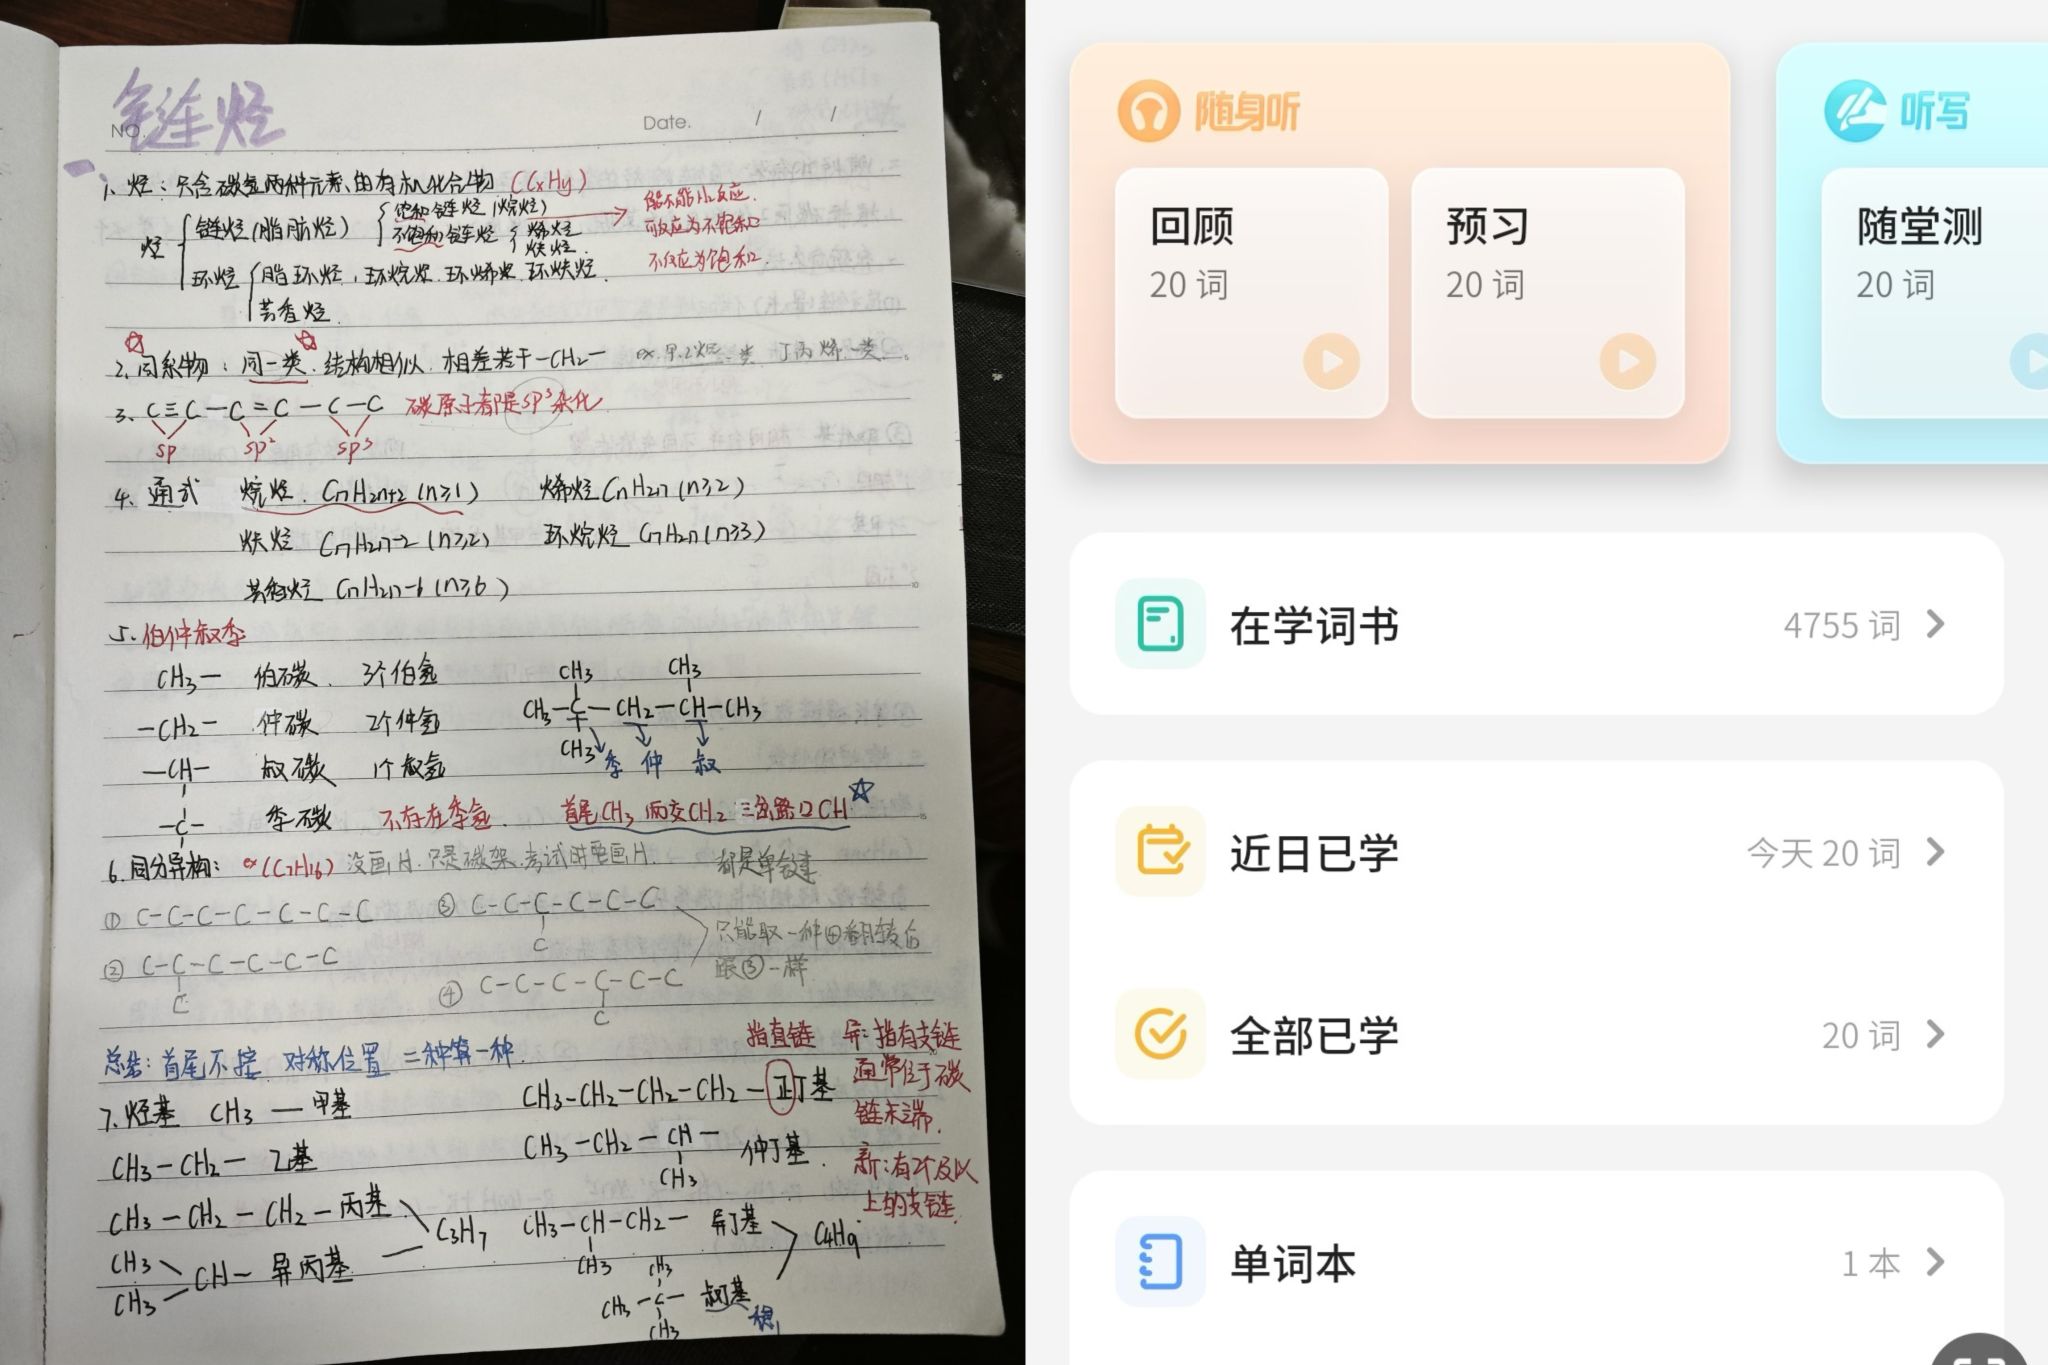 链烃
NO.
Date. / /
1. 烃：只含碳氢两种元素的有机化合物 (CxHy)
烃 链烃(脂肪烃) 饱和链烃(烷烃)
不饱和链烃 烯烃
炔烃
能不能H2反应.
可反应为不饱和
不反应为饱和.
环烃 脂环烃，环烷烃.环烯烃.环炔烃.
芸香烃.
2. 同系物：同一类.结构相似.相差若干-CH2- ex.甲.乙烷一类 丁丙烯一类.
3. C≡C-C=C-C-C 碳原子都是sp³杂化
sp sp² sp³
4. 通式 烷烃. CnH2n+2 (n≥1) 烯烃 CnH2n (n≥2)
炔烃 CnH2n-2 (n≥2) 环烷烃 CnH2n (n≥3)
CnH2n-6 (n≥6)
5. 伯仲叔季
CH3- 伯碳. 3个伯氢
-CH2- 仲碳 2个仲氢
-CH- 叔碳 1个叔氢
-C- 季碳 不存在季氢.
CH3 CH3
CH3-C-CH2-CH-CH3
CH3 季 仲 叔
首尾CH3 两交CH2 三岔路口CH
6. 同分异构： ex (C7H16) 没画H.只是碳架.考试时要画H. 都是单键
① C-C-C-C-C-C-C
② C-C-C-C-C-C
C
③ C-C-C-C-C-C
C
④ C-C-C-C-C-C
C
只能取一种④翻转后
跟③一样
总结：首尾不接 对称位置 二种算一种.
7. 烃基 CH3- 甲基
CH3-CH2- 乙基
CH3-CH2-CH2- 丙基
CH3
CH- 异丙基
CH3
C3H7
CH3-CH2-CH2-CH2-正丁基
CH3-CH2-CH- 仲丁基.
CH3
CH3-CH-CH2- 异丁基
CH3
CH3
CH3-C- 叔丁基
CH3
C4H9
指直链 异：指有支链
通常位于碳
链末端.
新：有2个及以
上的支链.
随身听
回顾
20 词
预习
20 词
听写
随堂测
20 词
在学词书 4755 词
近日已学 今天 20 词
全部已学 20 词
单词本 1 本